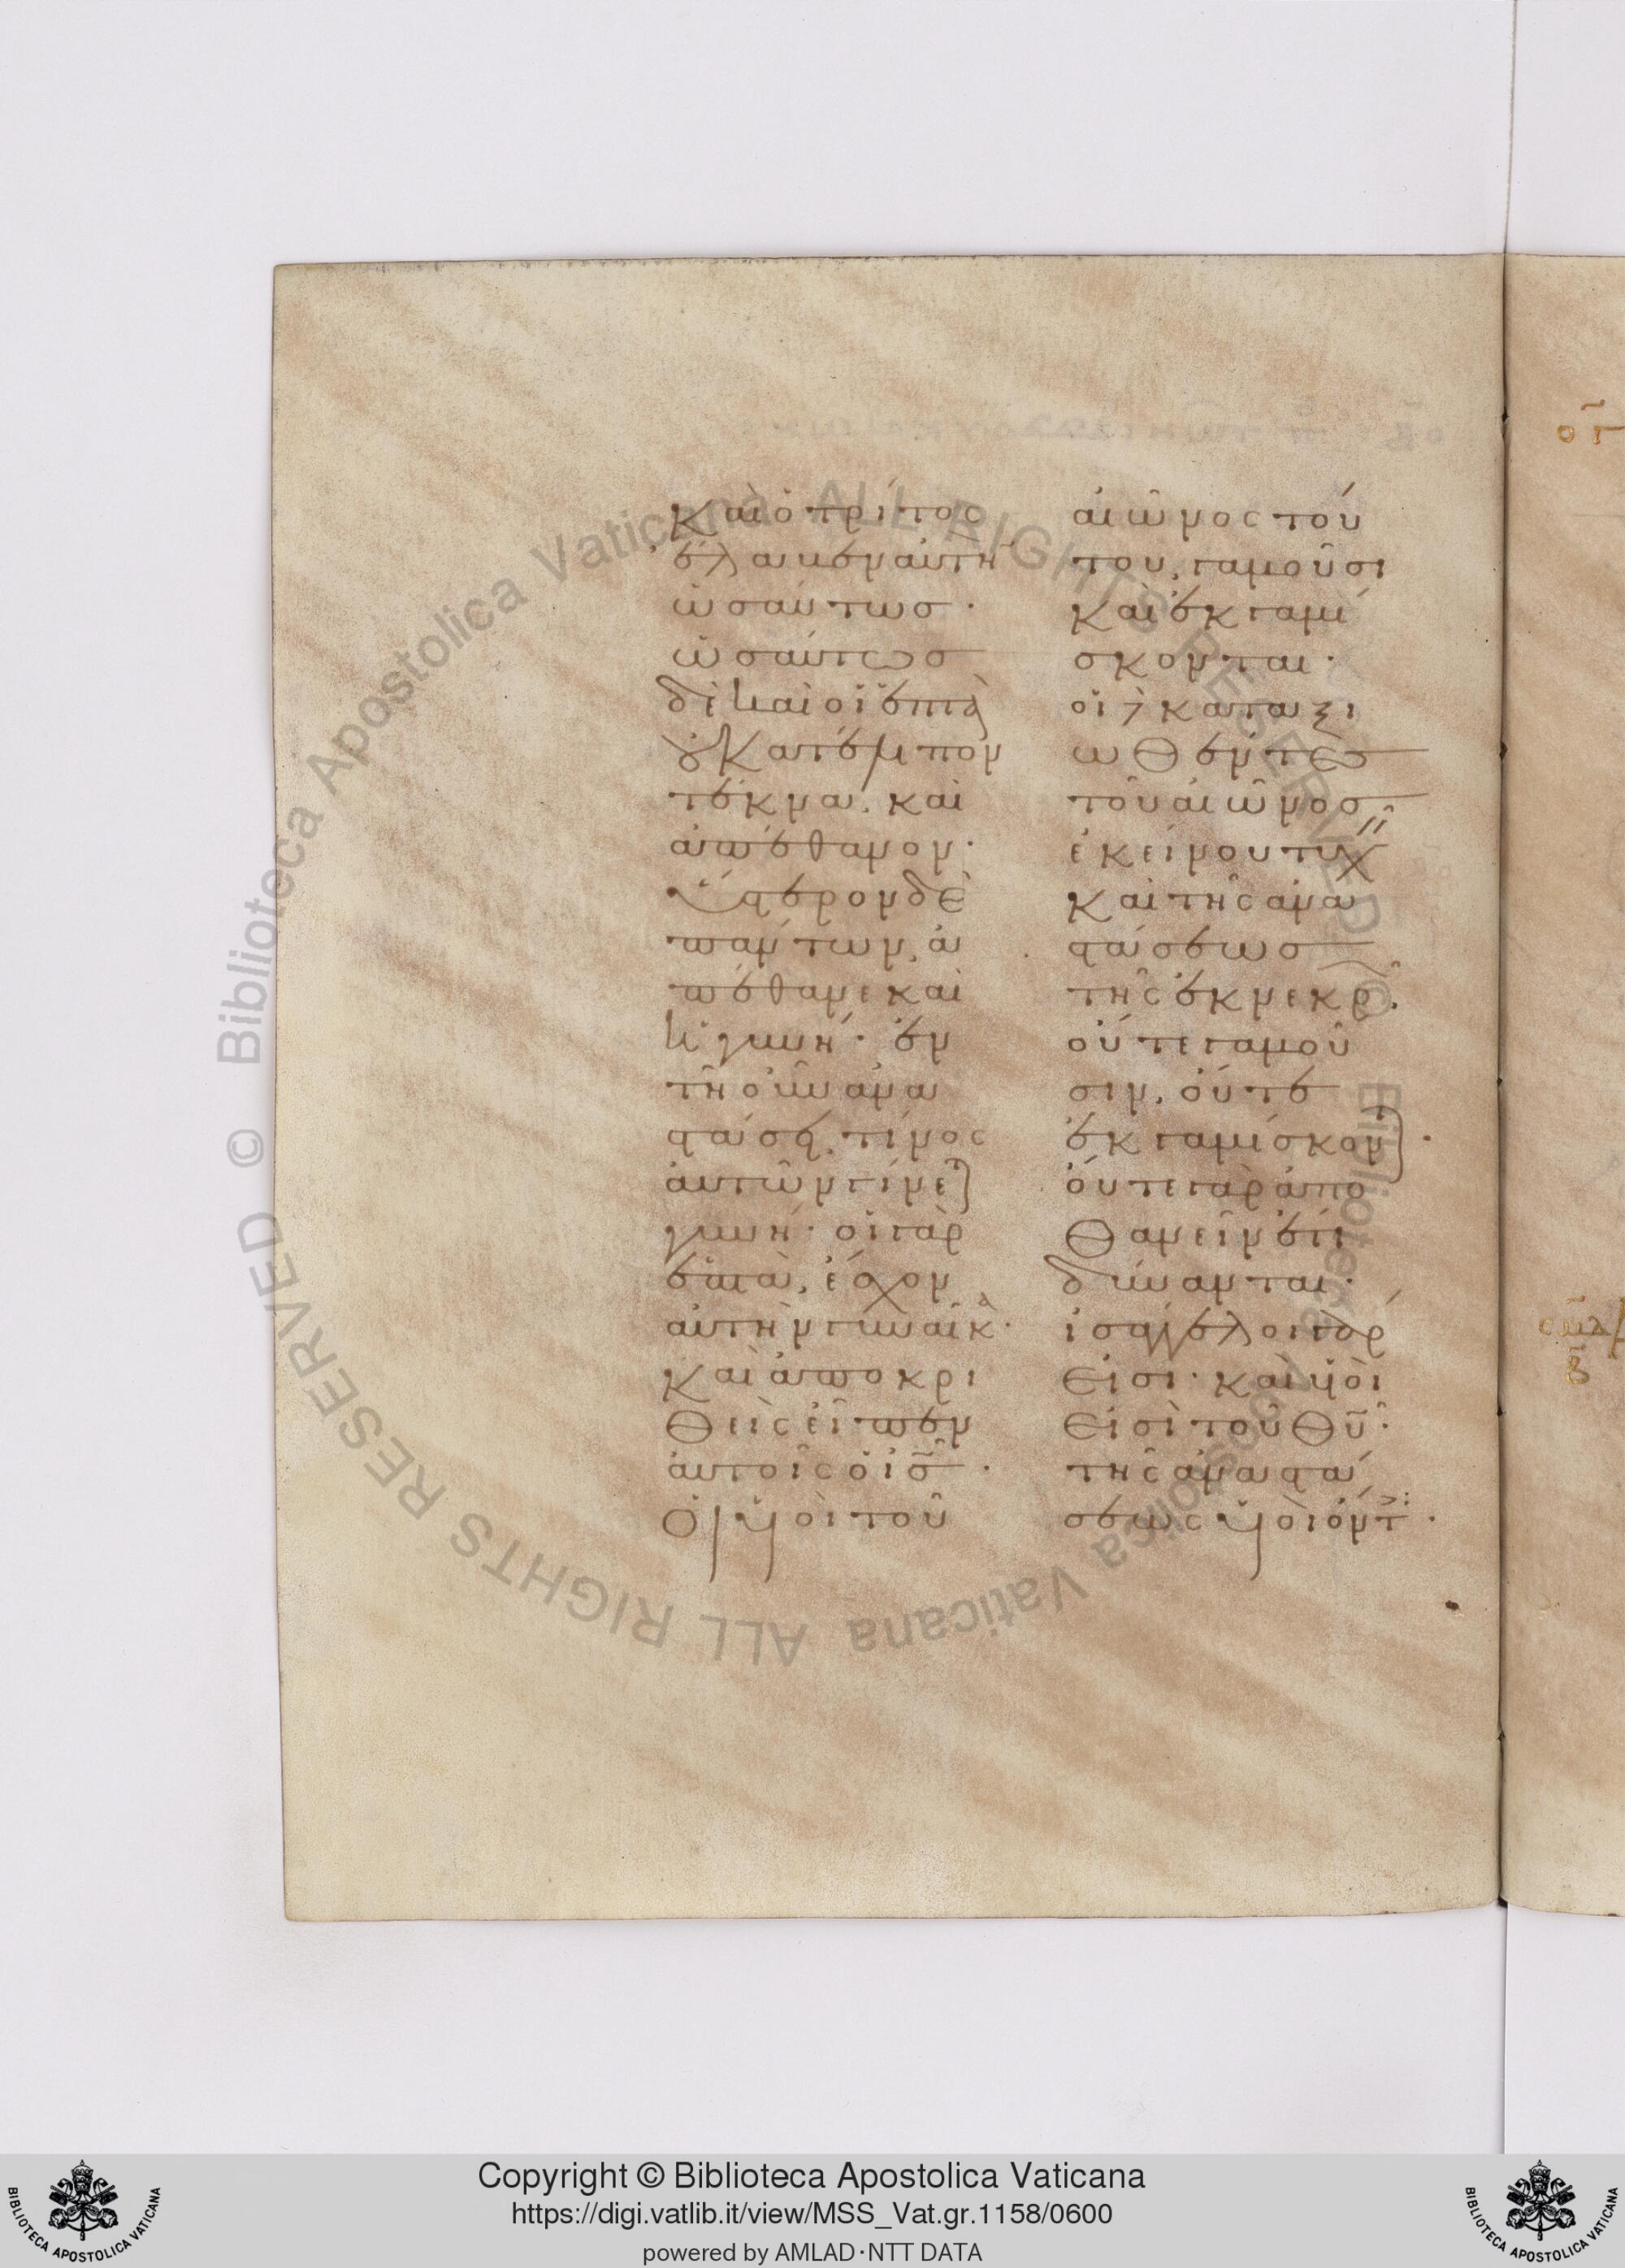 καὶ ὁ τρίτος
ἔλαβεν αὐτὴν
ὡσαύτως·
ὡσαύτως
δὲ καὶ οἱ ἑπτὰ
οὐ κατέλιπον
τέκνα, καὶ
ἀπέθανον·
ὕστερον δὲ
πάντων, ἀ
πέθανε καὶ
ἡ γυνή· ἐν
τῇ οὖν ἀνα
στάσει, τίνος
αὐτῶν γίνεται
γυνή· οἱ γὰρ
ἑπτὰ, ἔσχον
αὐτὴν γυναῖκα·
καὶ ἀποκρι
θεὶς εἶπεν
αὐτοῖς ὁ ις·
οἱ υἱοὶ τοῦ
αἰῶνος τού
του, γαμοῦσι
καὶ ἐκγαμί
σκονται·
οἱ δὲ καταξι
ωθέντες
τοῦ αἰῶνος
ἐκείνου τυχεῖν
καὶ τῆς ἀνα
στάσεως
τῆς ἐκ νεκρῶν·
οὔτε γαμοῦ
σιν, οὔτε
ἐκγαμίσκονται·
οὔτε γὰρ ἀπο
θανεῖν ἔτι
δύνανται·
ἰσάγγελοι γάρ
εἰσι· καὶ υἱοί
εἰσι τοῦ θυ·
τῆς ἀναστά
σεως υἱοὶ ὄντες·
Copyright © Biblioteca Apostolica Vaticana
https://digi.vatlib.it/view/MSS_Vat.gr.1158/0600
powered by AMLAD·NTT DATA
BIBLIOTECA APOSTOLICA VATICANA
BIBLIOTECA APOSTOLICA VATICANA
© Biblioteca Apostolica Vaticana ALL RIGHTS RESERVED
© Biblioteca Apostolica Vaticana ALL RIGHTS RESERVED